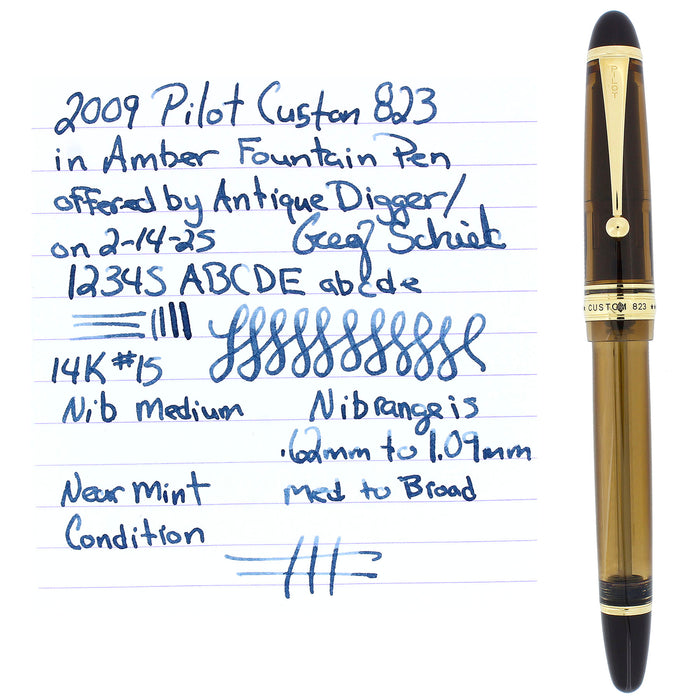 2009 Pilot Custom 823
in Amber Fountain Pen
offered by Antique Digger/
on 2-14-25 Greg
12345 ABCDE abcde
14K #15
Nib Medium Nib range is
.62mm to 1.09mm
Near Mint med to Broad
Condition
PILOT
CUSTOM 823